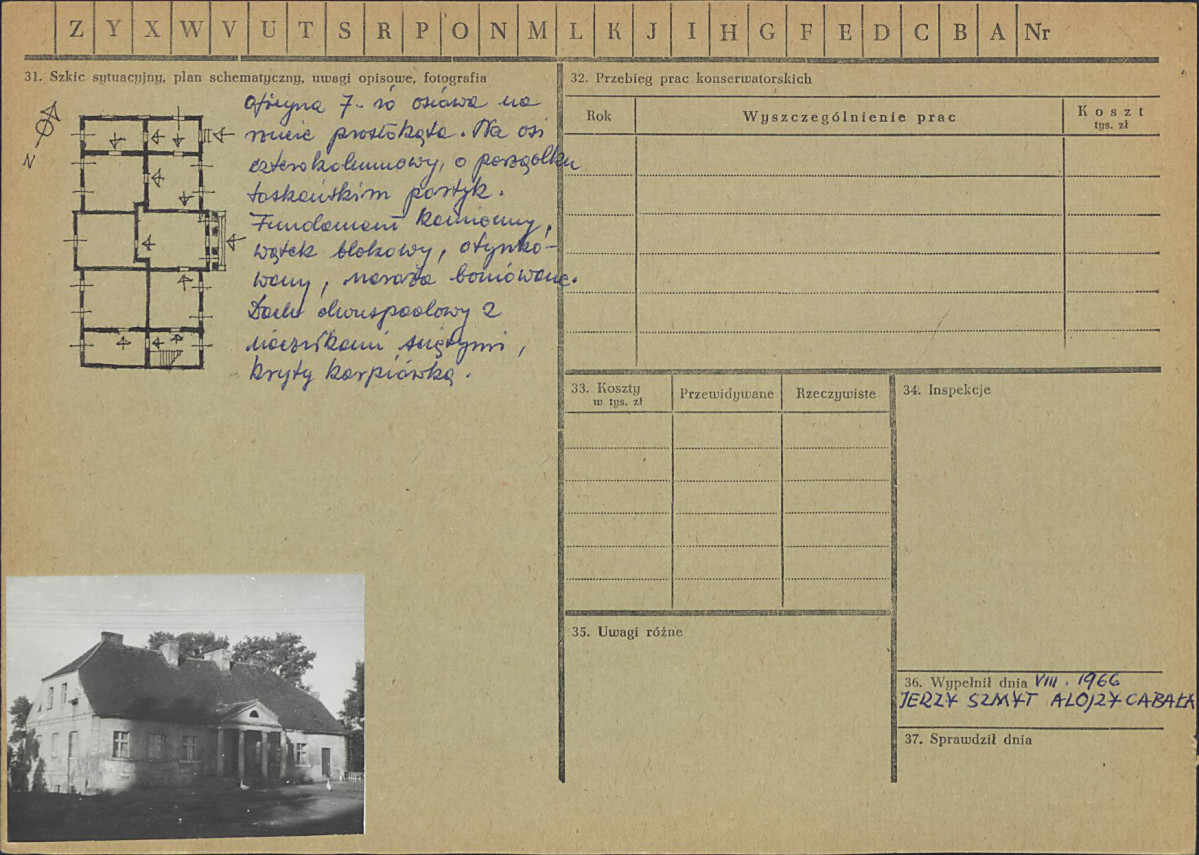 Z Y X W V U T S R P O N M L K J I H G F E D C B A Nr
31. Szkic sytuacyjny, plan schematyczny, uwagi opisowe, fotografia
N
Oficyna 7-io osiowa na
rzucie prostokąta. Na osi
czterokolumnowy, o porządku
toskańskim portyk.
Fundament kamienny,
wątek blokowy, otynko-
wany, naroża boniowane.
Dach dwuspadowy z
naczółkami ściętymi,
kryty karpiówką.
32. Przebieg prac konserwatorskich
Rok
Wyszczególnienie prac
Koszt
tys. zł
33. Koszty
w tys. zł
Przewidywane
Rzeczywiste
34. Inspekcje
35. Uwagi różne
36. Wypełnił dnia VIII. 1966
JERZY SZMYT ALOJZY CABAŁA
37. Sprawdził dnia